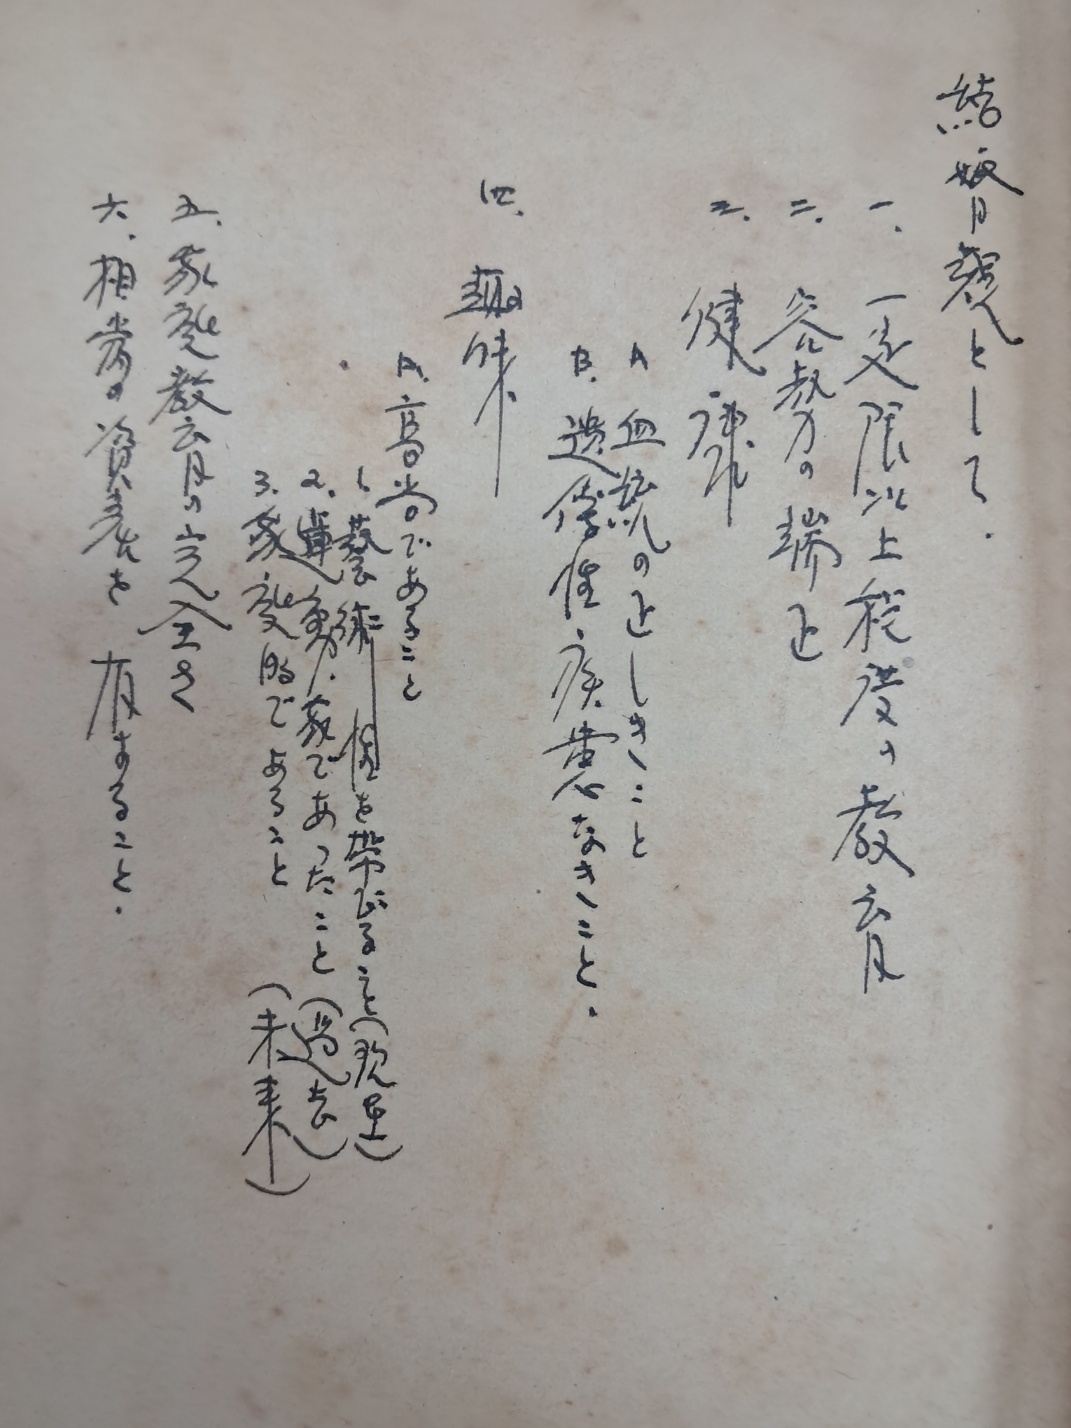 結婚観として.
一. 一定限以上程度の教育
二. 容勢の端正
三. 健康
A 血統の正しきこと
B. 遺傳性疾患なきこと.
四. 趣味
A. 高尚であること
1. 藝術性を帯びること(現在)
2. 運動家であったこと(過去)
3. 家庭的であること(未来)
五. 家庭教育の完全さ
六. 相當の資産を有すること.